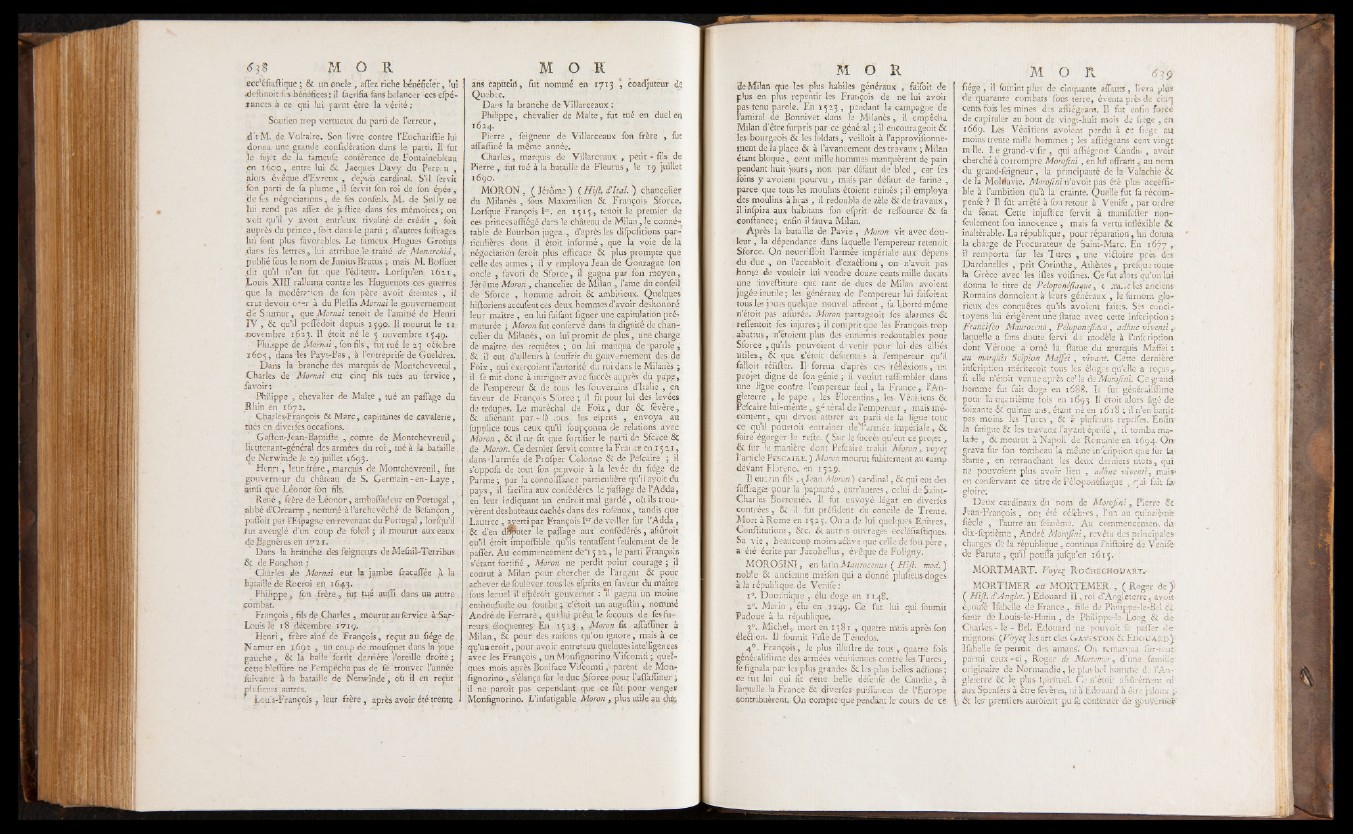 638 M O R
eccléfiaftique ; & un oncle , affez riche bénéficier, lui
deftinoit fes bénéfices : il facrifia fans balancer ces efpé-
rances à ce qui lui parut être la vérité ;
Soutien trop vertueux du parti de l'erreur ,
dit M. de Voltaire. Son livre contre l'Euchariftie lui
donna une grande confidération dans le parti. Il fut
le fujet de la fameufe conférence de Fontainebleau
en 1600 , entre lui & Jacques Davy du Perron ,
alors évêque d'Evreux , depuis cardinal. S'il fervit
fon parti de fa plume , il fervit fon roi de fon épée ,
de fes négociations , de fes confeils. M. de Sully ne
lui rend pas affez de juftice dans fes mémoires ; on
voit qu'il y avoit entr'eux rivalité de crédit , foit
auprès du prince , foit dans le parti ; d'autres fuffrages
lui font plus favorables. Le fameux Hugues Grotius
dans fes lettres, lui attribue le traité de
publié fous le nom de Junius-Brutus ; mais M. Boffuet
dit qu'il n'en fut que l'éditeur. Lorfqu'en 1621 ,
Louis XIII ralluma contre les Huguenots ces guerres
que la modération de fon père avoit éteintes , il
crut devoir ôter à du Pleffis Mornai le gouvernement
de Saumur , que Mornai tenoit de l'amitié de Henri
IV , & qu'il poffédoit depuis 1590. Il mourut le 11
novembre 1623. Il étoit né le 5 novembre 1549.
Philippe de Mornai , fon fils , fut tué le 23 octobre
1605, dans les Pays-Bas , à l'entreprife de Gueldres.
Dans la branche des marquis de Montchevreuil ,
Charles de Mornai eut cinq fils tués au fervice ,
favoir :
Philippe , chevalier de Malte , tué au paffage du
Rhin en 1672.
Charles-François & Marc , capitaines de cavalerie ,
tués en diverfes occafions.
Gafton-Jean-Baptifte , comte de Montchevreuil ,
lieutenant-général des armées du roi , tué à la bataille
de Nerwinde le 29 juillet 1693.
Henri , leur frère , marquis de Montchevreuil , fut
gouverneur du château de S. Germain-en-Laye ,
ainfi que Léonor fon fils.
René , frère de Léonor , ambaffadeur en Portugal ,
abbé d'Orcamp , nommé à l'archevêché de Befançon ,
paffoit par l'Efpagne en revenant du Portugal , lorfqu'il
fut aveuglé d'un coup de foleil ; il mourut aux eaux
de Bagnères en 1721.
Dans la branche des feigneurs de Mefnil-Terribus
& de Ponchon :
Charles de Mornai eut la jambe fracaffée à la
bataille de Rocroi en 1643.
Philippe , fon frère , fut tué auffi dans un autre
combat.
François , fils de Charles , mourut au fervice à Sar-
Louis le 18 décembre 1719.
Henri , frère aîné de François , reçut au fiége de
Namur en 1692 , un coup de moufquet dans la joue
gauche , & la balle fortit derrière l'oreille droite ;
cette bleffure ne l'empêcha pas de fe trouver l'année
fuivante à la bataille de Nerwinde , où il en reçut
plufieurs autres.
Louis-François , leur frère , après avoir été trente
M O R
ans capucin , fut nommé en 1713 , coadjuteur de
Quebec.
Dans la branche de Villarceaux :
Philippe , chevalier de Malte , fut tué en duel en
1624.
Pierre , feigneur de Villarceaux fon frère , fut
affaffiné la même année.
Charles , marquis de Villarceaux , petit-fils de
Pierre , fut tué à la bataille de Fleurus , le 19 juillet
1690.
MORON , ( Jérôme ) ( Hift. d'Ital. ) chancelier
du Milanès , fous Maximilien & François Sforce.
Lorfque François Ier. en 1515 , tenoit le premier de
ces princes affiégé dans le château de Milan , le conné-
table de Bourbon jugea , d'après les difpofitions par-
ticulières dont il étoit informé , que la voie de la
négociation feroit plus efficace & plus prompte que
celle des armes ; il y employa Jean de Gonzague fon
oncle , favori de Sforce , il gagna par fon moyen ,
Jérôme Moron , chancelier de Milan , l'ame du confeil
de Sforce , homme adroit & ambitieux. Quelques
hiftoriens accufent ces deux hommes d'avoir deshonoré
leur maître , en lui faifant figner une capitulation pré-
maturée ; Moron fut confervé dans la dignité de chan-
celier du Milanès , on lui promit de plus , une charge
de maître des requêtes ; on lui manqua de parole ,
& il eut d'ailleurs à fouffrir du gouvernement des de
Foix , qui exerçoient l'autorité du roi dans le Milanès ;
il fe mit donc à intriguer avec fuccès auprès du pape ,
de l'empereur & de tous les fouverains d'Italie , en
faveur de François Sforce ; il fit pour lui des levées
de troupes. Le maréchal de Foix , dur & févère ,
& aliénant par-là tous les efprits , envoya au
fupplice tous ceux qu'il foupçonna de relations avec
Moron , & il ne fit que fortifier le parti de Sforce &
de Moron. Ce dernier fervit contre la France en 1521 ,
dans l'armée de Profper Colonne & de Pefcaire ; il
s'oppofa de tout fon pouvoir à la levée du fiége de
Parme ; par la connoiffance particulière qu'il avoit du
pays , il facilita aux confédérés le paffage de l'Adda ,
en leur indiquant un endroit mal gardé , où ils trou-
vèrent des bateaux cachés dans des rofeaux , tandis que
Lautrec , averti par François Ier. de veiller fur l'Adda ,
& d'en difputer le paffage aux confédérés , affuroit
qu'il étoit impoffible qu'ils tentaffent feulement de le
paffer. Au commencement de 1522 , le parti François
s'étant fortifié , Moron ne perdit point courage ; il
courut à Milan pour chercher de l'argent & pour
achever de foulever tous les efprits en faveur du maître
fous lequel il efpéroit gouverner : il gagna un moine
enthoufiafte ou fourbe ; c'étoit un auguftin , nommé
André de Ferrare , qui lui prêta le fecours de fes fu-
reurs éloquentes. En 1523 , Moron fit affaffiner à
Milan , & pour des raifons qu'on ignore , mais à ce
qu'on croit , pour avoir entretenu quelques intelligences
avec les François , un Monfignorino Vifconti ; quel-
ques mois après Boniface Vifconti , parent de Mon-
fignorino , s'élança fur le duc Sforce pour l'affaffiner ;
il ne paroît pas cependant que ce fût pour venger
Monfignorino. L'infatigable Moron , plus utile au duc
M O R
de Milan que les plus habiles généraux , faifoit de
plus en plus repentir les François de ne lui avoir
pas tenu parole. En 1523 , pendant la campagne de
l'amiral de Bonnivet dans le Milanès , il empêcha
Milan d'être furpris par ce général ; il encourageoit &
les bourgeois & les foldats , veilloit à l'approvifionne-
ment de la place & à l'avancement des travaux ; Milan
étant bloqué , cent mille hommes manquèrent de pain
pendant huit jours , non par défaut de bled , car fes
foins y avoient pourvu , mais par défaut de farine ,
parce que tous les moulins étoient ruinés ; il employa
des moulins à bras , il redoubla de zèle & de travaux ,
il infpira aux habitans fon efprit de reffource & fa
conftance ; enfin il fauva Milan.
Après la bataille de Pavie , Moron vit avec dou-
leur , la dépendance dans laquelle l'empereur retenoit
Sforce. On nourriffoit l'armée impériale aux dépens
du duc , on l'accabloit d'exactions , on n'avoit pas
honte de vouloir lui vendre douze cents mille ducats
une inveftiture que tant de ducs de Milan avoient
jugée inutile ; les généraux de l'empereur lui faifoient
tous les jours quelque nouvel affront , fa liberté même
n'étoit pas affurée. Moron partageoit fes alarmes &
reffentoit fes injures ; il comprit que les François trop
abattus , n'étoient plus des ennemis redoutables pour
Sforce , qu'ils pouvoient devenir pour lui des alliés
utiles , & que c'étoit déformais à l'empereur qu'il
falloit réfifter. Il forma d'après ces réflexions , un
projet digne de fon génie ; il voulut raffembler dans
une ligue contre l'empereur feul , la France , l'An-
gleterre , le pape , les Florentins , les Vénitiens &
Pefcaire lui-même , général de l'empereur , mais mé-
content , qui devoit attirer au parti de la ligue tout
ce qu'il pourroit entraîner de l'armée impériale , &
faire égorger le refte. ( Sur le fuccès qu'eut ce projet ,
& fur la manière dont Pefcaire trahit Moron , voyez
l'article PESCAIRE. ) Moron mourut fubitement au camp
devant Florence , en 1529.
Il eut un fils , ( Jean Moron ) cardinal , & qui eut des
fuffrages pour la papauté , entr'autres , celui de Saint-
Charles Borromée. Il fut envoyé légat en diverfes
contrées , & il fut préfident du concile de Trente.
Mort à Rome en 1525. On a de lui quelques Epîtres ,
Conftitutions , &c. & autres ouvrages eccléfiaftiques.
Sa vie , beaucoup moins active que celle de fon père ,
a été écrite par Jacobellus , évêque de Foligny.
MOROSINI , en latin Maurocenus ( Hift. mod. )
noble & ancienne maifon qui a donné plufieurs doges
à la république de Venife :
1°. Dominique , élu doge en 1148.
2°. Marin , élu en 1249. Ce fut lui qui foumit
Padoue à la république.
3°. Michel , mort en 1381 , quatre mois après fon
élection. Il foumit l'ifle de Ténedos.
4°. François , le plus illuftre de tous , quatre fois
généraliffime des armées vénitiennes contre les Turcs ,
fe fignala par les plus grandes & les plus belles actions ;
ce fut lui qui fit cette belle défenfe de Candie , à
laquelle la France & diverfes puiffances de l'Europe
contribuèrent. On compte que pendant le cours de ce
M O R 639
fiége , il foutint plus de cinquante affauts , livra plus
de quarante combats fous terre , éventa près de cinq
cents fois les mines des affiégeans. Il fut enfin forcé
de capituler au bout de vingt-huit mois de fiége , en
1669. Les Vénitiens avoient perdu à ce fiége au
moins trente mille hommes ; les affiégeans cent vingt
mille. Le grand-vifir , qui affiégeoit Candie , avoit
cherché à corrompre Morofini , en lui offrant , au nom
du grand-feigneur , la principauté de la Valachie &
de la Moldavie. Morofini n'avoit pas été plus acceffi-
ble à l'ambition qu'à la crainte. Quelle fut fa récom-
penfe ? Il fut arrêté à fon retour à Venife , par ordre
du fénat. Cette injuftice fervit à manifefter non-
feulement fon innocence , mais fa vertu inflexible &
inaltérable. La république , pour réparation , lui donna
la charge de Procurateur de Saint-Marc. En 1677 ,
il remporta fur les Turcs , une victoire près des
Dardanelles , prit Corinthe , Athènes , prefque toute
la Grèce avec les ifles voifines. Ce fut alors qu'on lui
donna le titre de Péloponéfiaque , comme les anciens
Romains donnoient à leurs généraux , le furnom glo-
rieux des conquêtes qu'ils avoient faites. Ses conci-
toyens lui érigèrent une ftatue avec cette infcription :
Francifco Mauroceno , Peloponefiaco , adhuc viventi ,
laquelle a fans doute fervi de modèle à l'infcription
dont Vérone a orné la ftatue du marquis Maffei :
au marquis Scipion Maffei , vivant. Cette dernière
infcription mériteroit tous les éloges qu'elle a reçus ,
fi elle n'étoit venue après celle de Morofini. Ce grand
homme fut fait doge en 1688. Il fut généraliffime
pour la quatrième fois en 1693. Il étoit alors âgé de
foixante & quinze ans , étant né en 1618 ; il n'en battit
pas moins les Turcs , & à plufieurs reprifes. Enfin
la fatigue & les travaux l'ayant épuifé , il tomba ma-
lade , & mourut à Napoli de Romanie en 1694. On
grava fur fon tombeau la même infcription que fur la
ftatue , en retranchant les deux derniers mots , qui
ne pouvoient plus avoir lieu , adhuc viventi , mais
en confervant ce titre de Péloponéfiaque , qui fait fa
gloire.
Deux cardinaux du nom de Morofini , Pierre &
Jean-François , ont été célèbres , l'un au quinzième
fiècle , l'autre au feizième. Au commencement du
dix-feptième , André Morofini , revêtu des principales
charges de la république , continua l'hiftoire de Venife
de Paruta , qu'il pouffa jufqu'en 1615.
MORTMART. Voyez ROCHECHOUART.
MORTIMER ou MORTEMER , ( Roger de )
( Hift. d'Anglet. ) Edouard II , roi d'Angleterre , avoit
époufé Ifabelle de France , fille de Philippe-le-Bel &
fœur de Louis-le-Hutin , de Philippe-le-Long & de
Charles-le-Bel. Edouard ne pouvoit fe paffer de
mignons ( Voyez les articles GAVESTON & EDOUARD )
Ifabelle fe permit des amans. On remarqua fur-tout
parmi ceux-ci , Roger de Mortemer , d'une famille
originaire de Normandie , le plus bel homme d'An-
gleterre & le plus fpirituel. Ce n'étoit affurément ni
aux Spenfers à être févères , ni à Edouard à être jaloux ;
& les premiers auroient pu fe contenter de gouverner